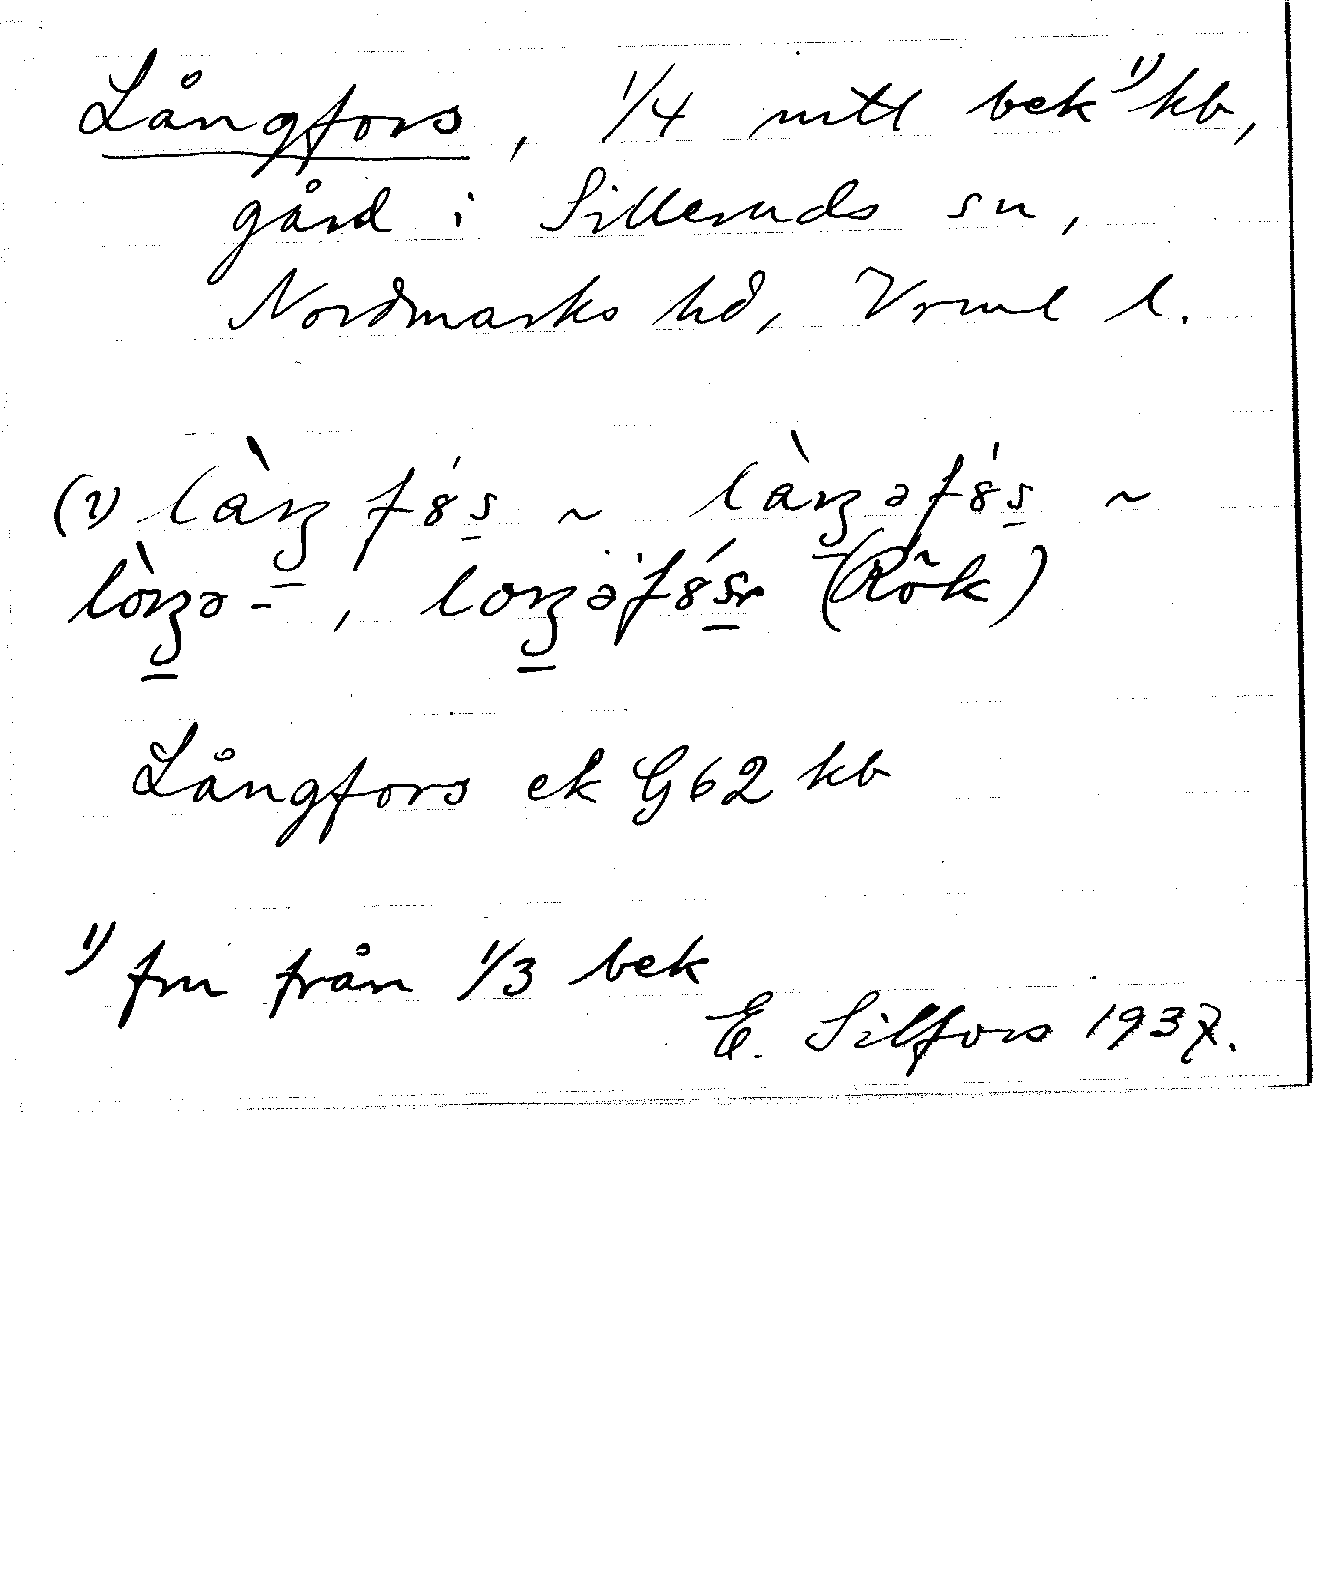 Långfors, 1/4 mtl bek 1) kb,
gård i Silleruds sn,
Nordmarks hd, Vrml l.
(i) làŋfó̤s ~ làŋəfó̤s ~
lòŋə-, loŋəfó̤sr (Rök)
Långfors ek G62 kb
1) fm från 1/3 bek
E. Silfors 1937.